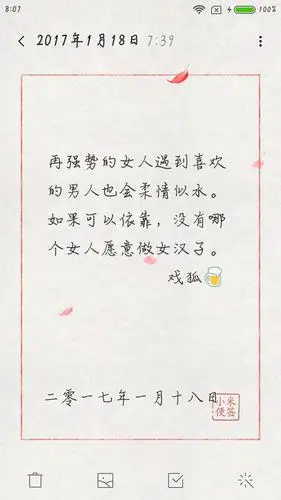 8:07
100%
2017年1月18日 7:39
再强势的女人遇到喜欢
的男人也会柔情似水。
如果可以依靠，没有哪
个女人愿意做女汉子。
戏狐🍺
二零一七年一月十八日
小米
便签